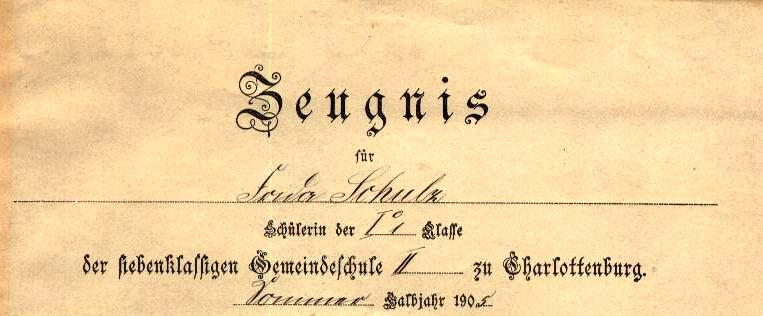 Zeugnis
für
Frida Schulz
Schülerin der I Klasse
der siebenklassigen Gemeindeschule II zu Charlottenburg.
Sommer Halbjahr 1905